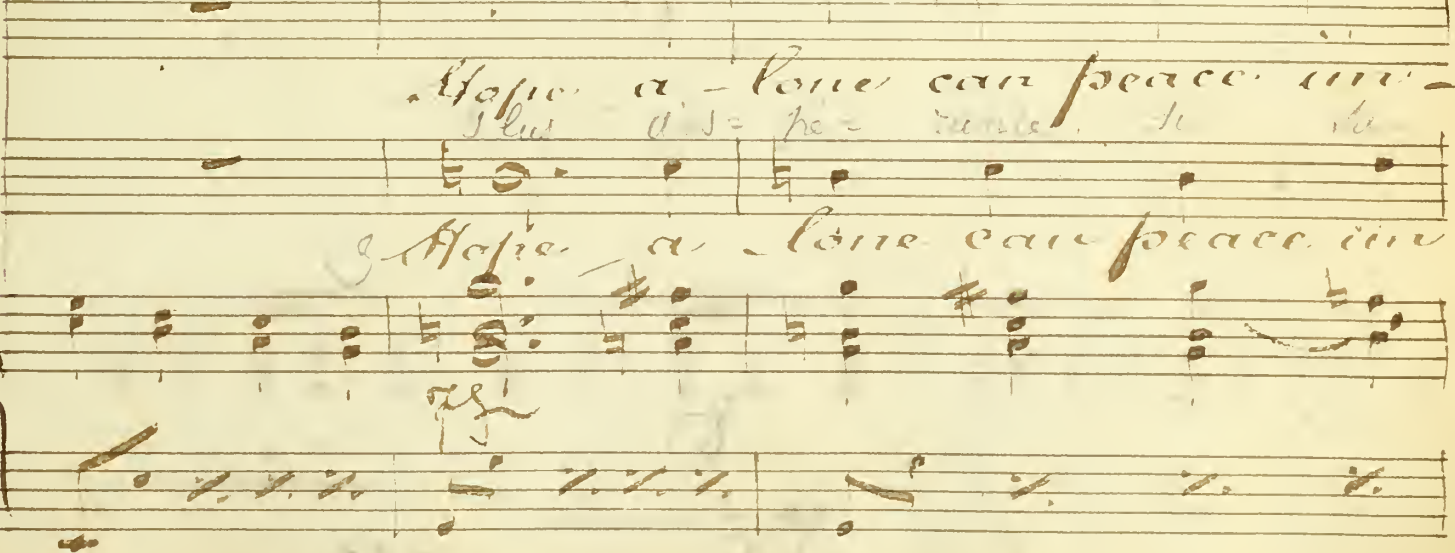 Hope a - lone can peace im -
Plus d'es= pé= rance
Hope a - lone can peace im